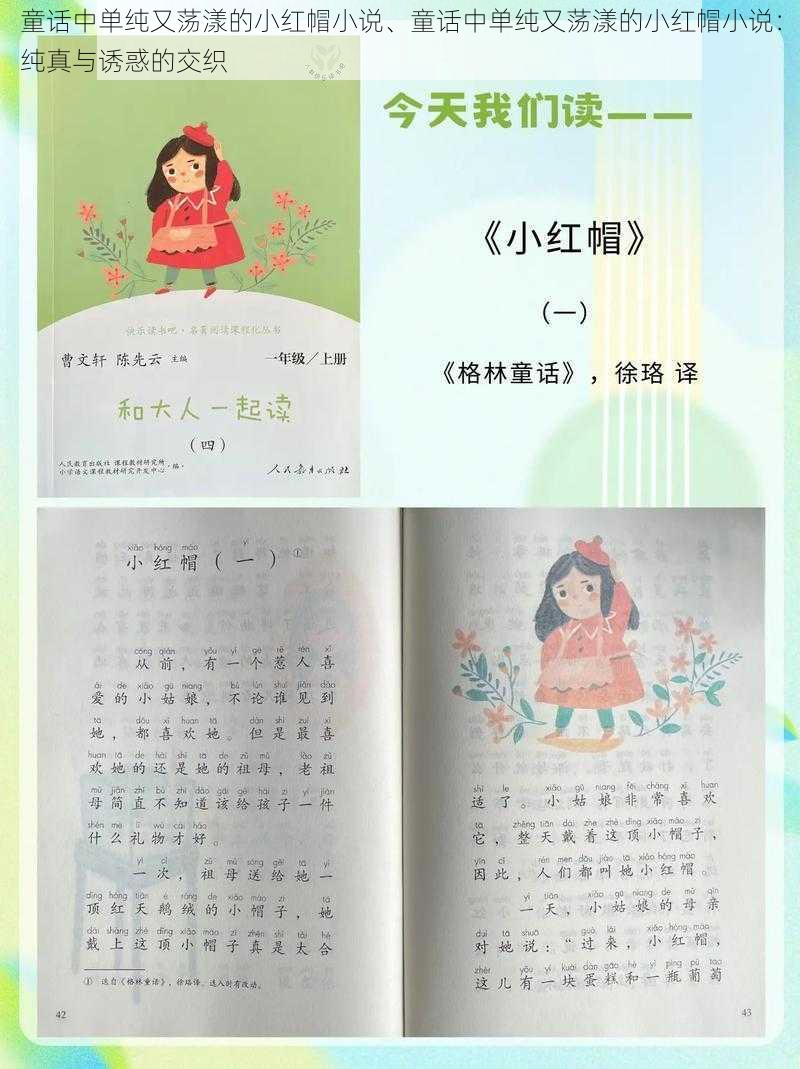 童话中单纯又荡漾的小红帽小说、童话中单纯又荡漾的小红帽小说：
纯真与诱惑的交织
今天我们读——
《小红帽》
（一）
《格林童话》，徐珞 译
快乐读书吧·名著阅读课程化丛书
曹文轩 陈先云 主编 一年级/上册
和大人一起读
（四）
人民教育出版社 课程教材研究所
小学语文课程教材研究开发中心 ·编·
人民教育出版社
xiǎo hóng mào yī
小红帽（一）①
cóng qián yǒu yí gè rě rén xǐ
从前，有一个惹人喜
ài de xiǎo gū niang bú lùn shuí jiàn dào
爱的小姑娘，不论谁见到
tā dōu xǐ huan tā dàn shì zuì xǐ
她，都喜欢她。但是最喜
huan tā de hái shì tā de zǔ mǔ lǎo zǔ
欢她的还是她的祖母，老祖
mǔ jiǎn zhí bù zhī dào gāi gěi hái zi yí jiàn
母简直不知道该给孩子一件
shén me lǐ wù cái hǎo
什么礼物才好。
yí cì zǔ mǔ sòng gěi tā yì
一次，祖母送给她一
dǐng hóng tiān é róng de xiǎo mào zi tā
顶红天鹅绒的小帽子，她
dài shàng zhè dǐng xiǎo mào zi zhēn shì tài hé
戴上这顶小帽子真是太合
① 选自《格林童话》，徐珞译。选入时有改动。
42
shì le xiǎo gū niang fēi cháng xǐ huan
适了。小姑娘非常喜欢
tā zhěng tiān dài zhe zhè dǐng xiǎo mào zi
它，整天戴着这顶小帽子，
yīn cǐ rén men dōu jiào tā xiǎo hóng mào
因此，人们都叫她小红帽。
yì tiān xiǎo gū niang de mǔ qīn
一天，小姑娘的母亲
duì tā shuō guò lái xiǎo hóng mào
对她说：“过来，小红帽，
zhèr yǒu yí kuài dàn gāo hé yì píng pú tao
这儿有一块蛋糕和一瓶葡萄
43